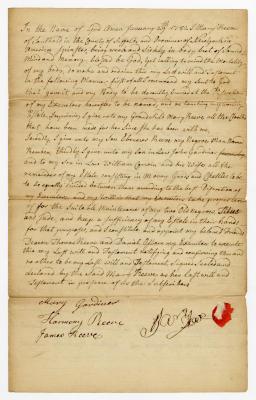 In the Name of God Amen January 29th 1782 I Mary Reeve
of Southold in the County of Suffolk and Province of
America Spinster, being weak and Sickly in body but of Sound
Mind and Memory blessed be God, yet calling to mind the Mortality
of my body, do make and ordain this my Last will and Testament
in the following Manner, first of all I recommend my Soul to God
that gave it and my Body to be decently buried at the Discretion
of my Executors hereafter to be named, and as touching my worldly
Estate Imprimis I give unto my Grandchild Mary Reeve all the
that have been made for her Since She has been with me,
Secondly, I give unto my Son Ebenezer Reeve, my Negro Man Named
Thirdly I give unto my son James
and to my Son in Law William and his Wife, all the
remainder of my Estate consisting in Money Goods and Chattles to be
to be equally divided between them according to the best Discretion of
my Executors and my will is that my Executors take proper care
for the Suitable Maintenance of my two Old Negroes
and Jude, and keep a sufficiency of my Estate in their hands
for that purpose, and I constitute and appoint my beloved Friends
Deacon Thomas Reeve and Daniel my Executors to execute
this my Last will and Testament ratifying and confirming this and
no other to be my Last will and Testament Signed Sealed and
declared by the Said Mary Reeve as her Last will and
Testament in presence of us the Subscribers
Mary Gardiner
Harmony Reeve
James Reeve